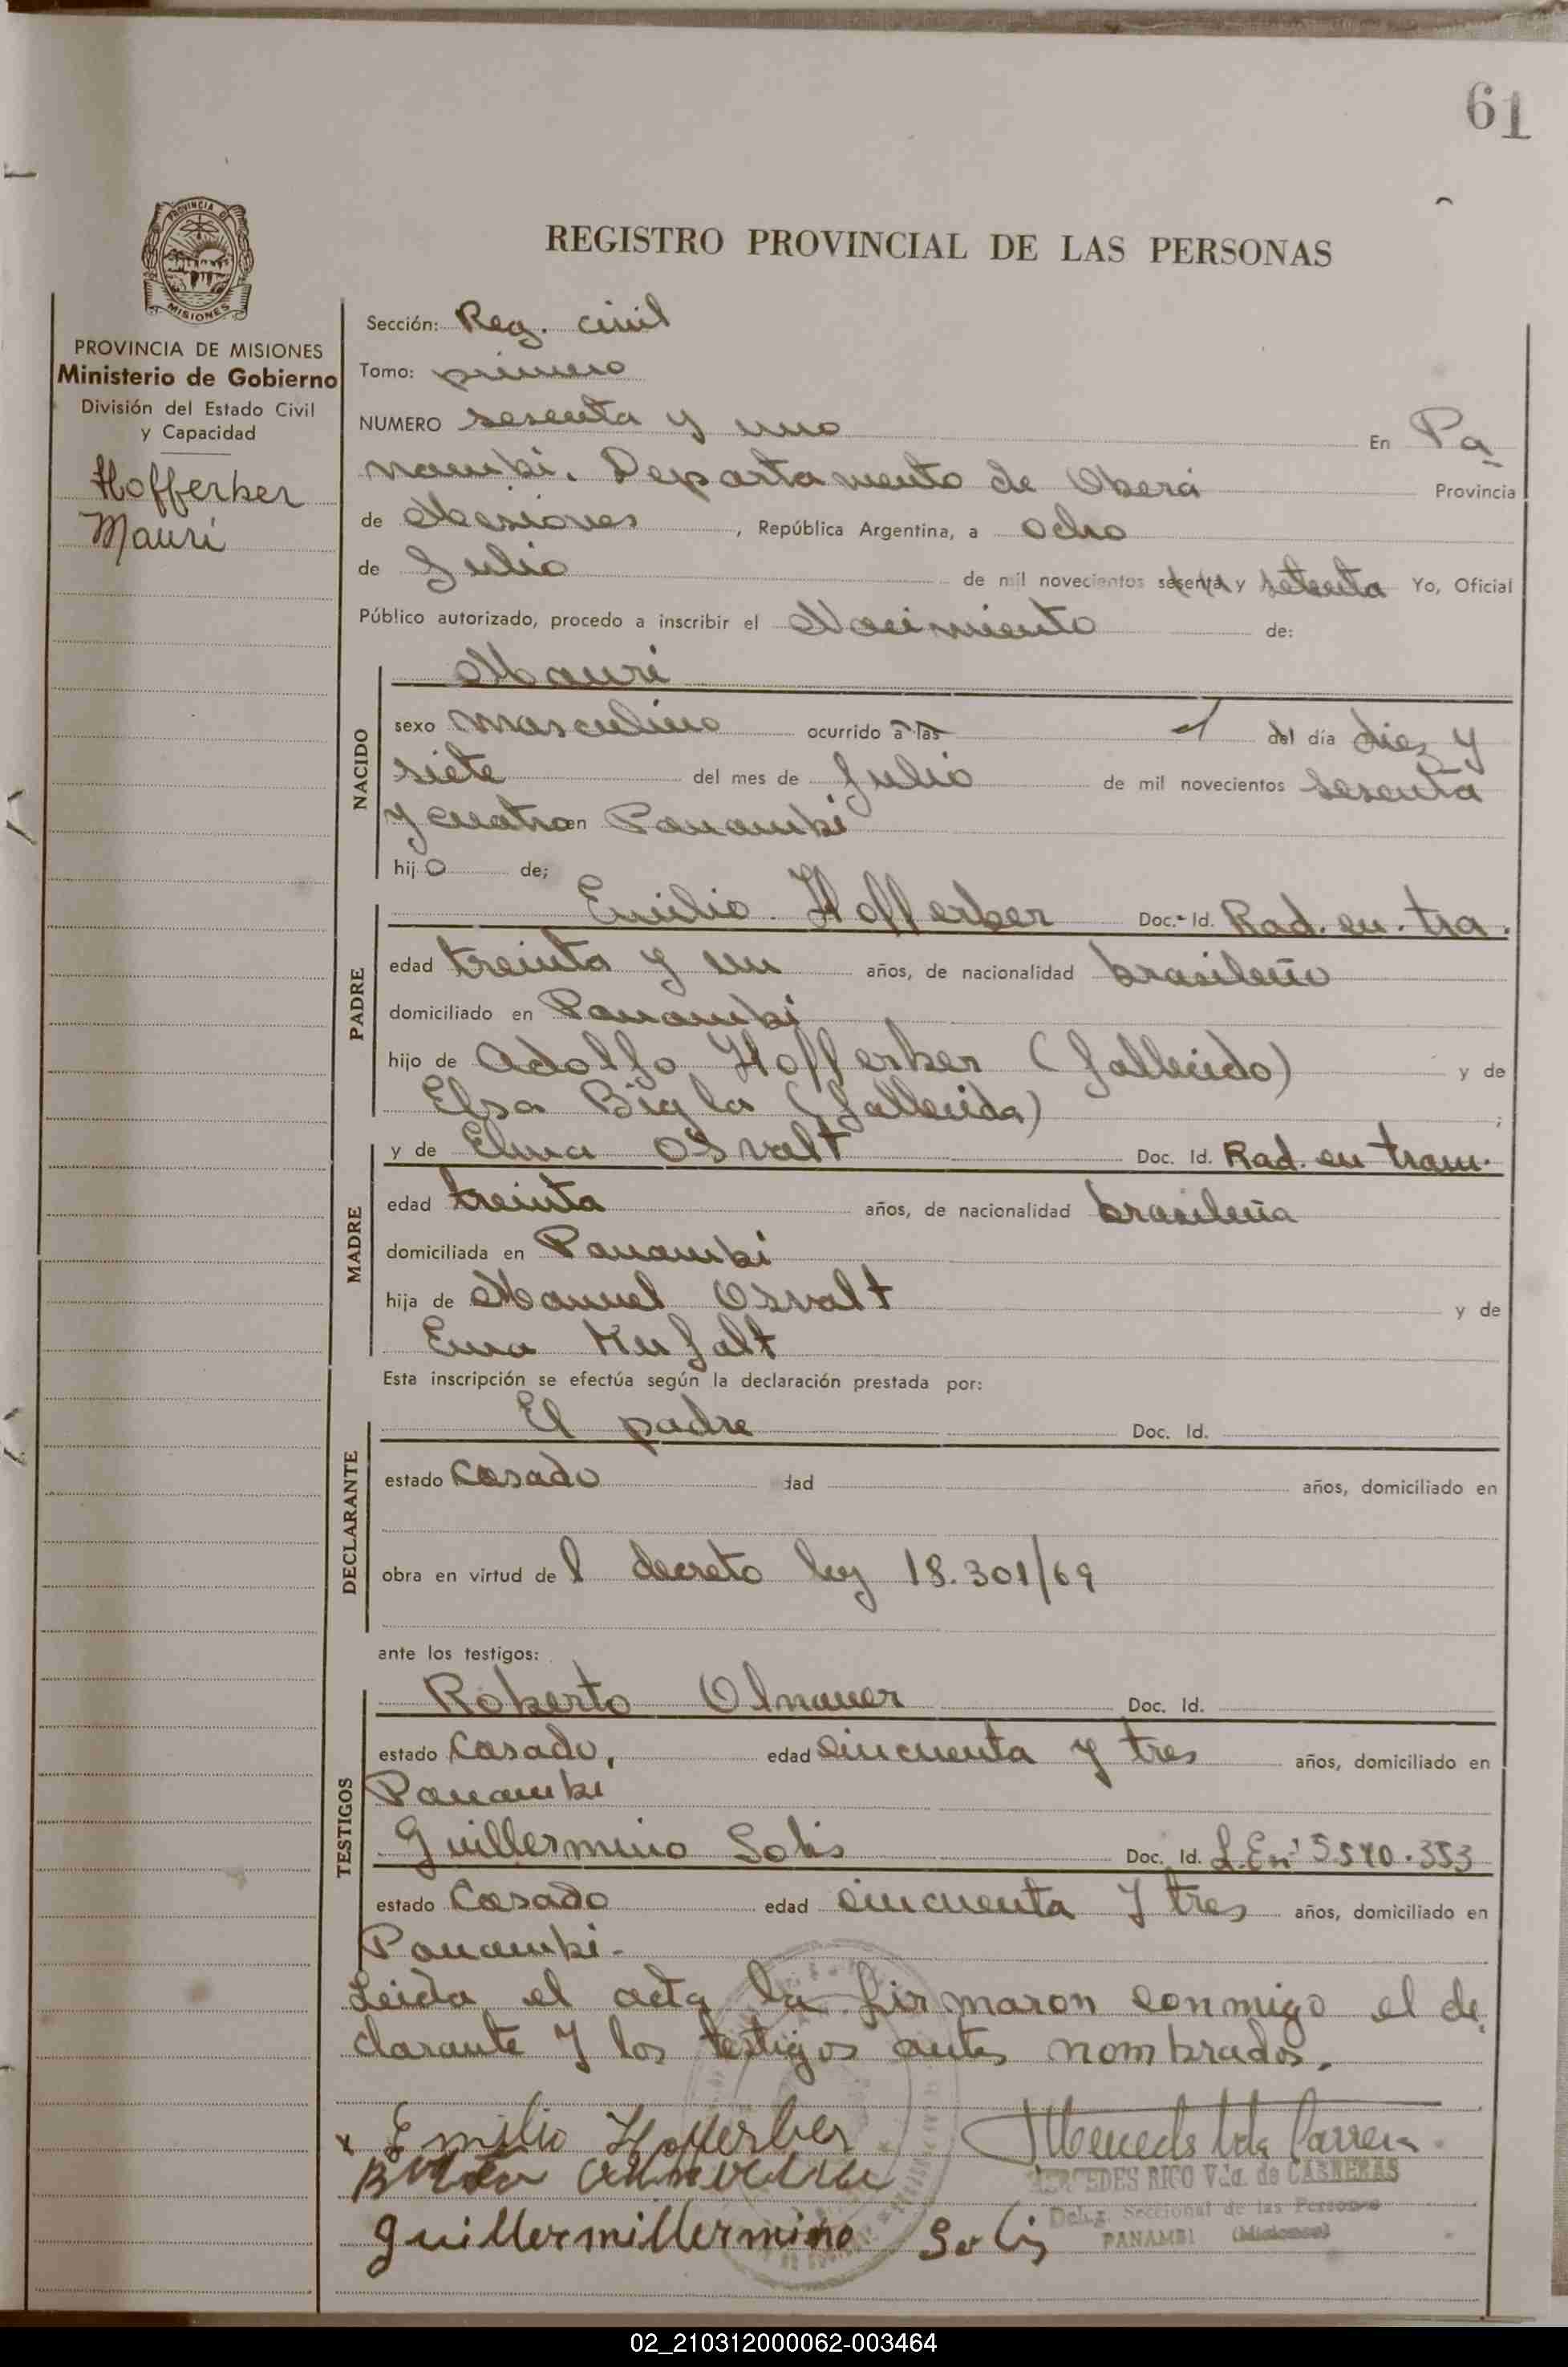 61
REGISTRO PROVINCIAL DE LAS PERSONAS
PROVINCIA DE
MISIONES
PROVINCIA DE MISIONES
Ministerio de Gobierno
División del Estado Civil
y Capacidad
Hofferber
Mauri
Sección: Reg. civil
Tomo: primero
NUMERO sesenta y uno En Pa
nambí. Departamento de Oberá Provincia
de Misiones, República Argentina, a ocho
de Julio de mil novecientos sesenta y setenta Yo, Oficial
Público autorizado, procedo a inscribir el Nacimiento de:
NACIDO
Mauri
sexo masculino ocurrido a las del día diez y
siete del mes de Julio de mil novecientos sesenta
y cuatro en Panambí
hijo de;
PADRE
Emilio Hofferber Doc. Id. Rad. en. tra.
edad treinta y un años, de nacionalidad brasileño
domiciliado en Panambí
hijo de Adolfo Hofferber (fallecido) y de
Elsa Bigla (fallecida) ;
MADRE
y de Elma Osvalt Doc. Id. Rad. en tram.
edad treinta años, de nacionalidad brasileña
domiciliada en Panambí
hija de Manuel Osvalt y de
Ema
Esta inscripción se efectúa según la declaración prestada por:
DECLARANTE
El padre Doc. Id.
estado casado dad años, domiciliado en
obra en virtud del decreto ley 18.301/69
ante los testigos:
TESTIGOS
Roberto Olnauer Doc. Id.
estado casado, edad cincuenta y tres años, domiciliado en
Panambí
Guillermino Solis Doc. Id. 5540.353
estado casado edad cincuenta y tres años, domiciliado en
Panambí.
Leida el acta la firmaron conmigo el de
clarante y los testigos antes nombrados.
x Emilio Hofferber
MERCEDES RICO Vda. de CABRERAS
Deleg. Seccional de las Personas
PANAMBI (Misiones)
Guillermillermino Solis
02_210312000062-003464